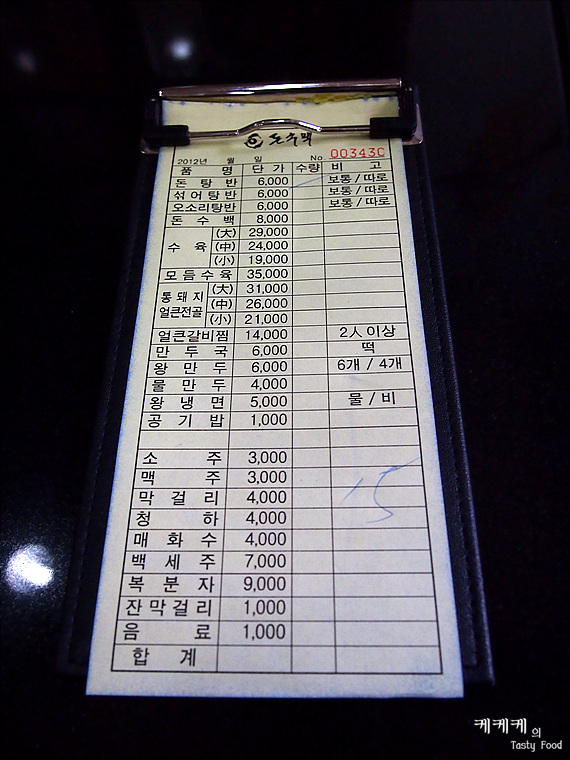 돈수백
2012년 월 일 No 00343C
품 명 단 가 수량 비 고
돈 탕 반 6,000 보통 / 따로
섞 어 탕 반 6,000 보통 / 따로
오소리탕반 6,000 보통 / 따로
돈 수 백 8,000
수 육 (大) 29,000
(中) 24,000
(小) 19,000
모 듬 수 육 35,000
통 돼 지 얼큰전골 (大) 31,000
(中) 26,000
(小) 21,000
얼큰갈비찜 14,000 2人 이상
만 두 국 6,000 떡
왕 만 두 6,000 6개 / 4개
물 만 두 4,000
왕 냉 면 5,000 물 / 비
공 기 밥 1,000
소 주 3,000
맥 주 3,000
막 걸 리 4,000
청 하 4,000
매 화 수 4,000
백 세 주 7,000
복 분 자 9,000
잔 막 걸 리 1,000
음 료 1,000
합 계
15
케케케의
Tasty Food